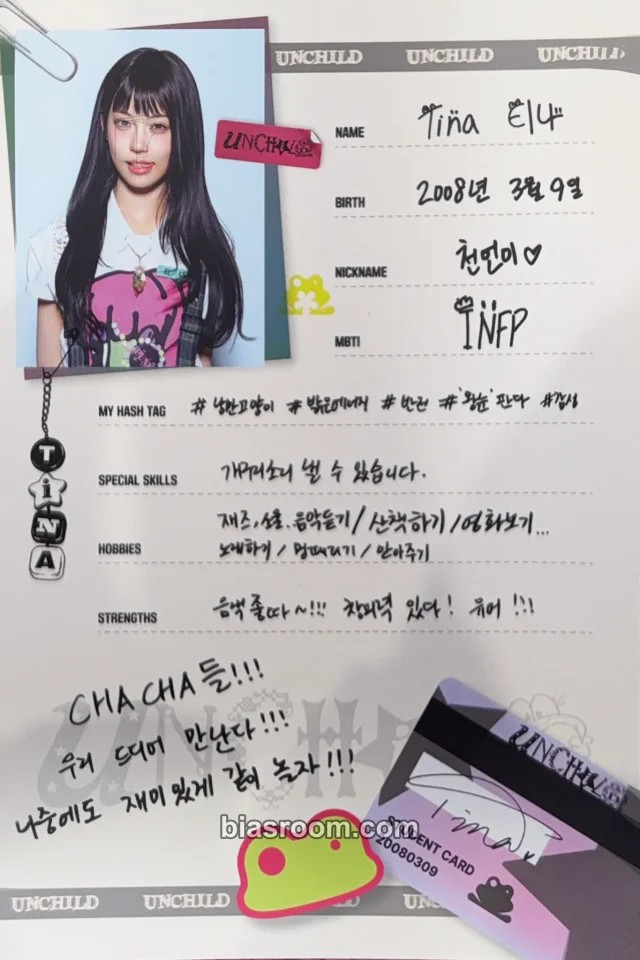 UNCHILD UNCHILD UNCHILD
UNCHILD
NAME Tina 티나
BIRTH 2008년 3월 9일
NICKNAME 천연미♡
MBTI INFP
MY HASH TAG #낭만고양이 #밝은에너지 #반전 #'왕눈'판다 #감성
SPECIAL SKILLS 개구리소리 낼 수 있습니다.
재즈, 소울. 음악듣기/산책하기/영화보기...
HOBBIES 노래하기/멍때리기/안아주기
STRENGTHS 음색 좋따~!!! 창의력 있다! 유머!!!
TiNA
CHACHA들!!!
우리 드디어 만난다!!!
나중에도 재미있게 같이 놀자!!!
UNCHILD
biasroom.com
UNCHILD
Tina
STUDENT CARD
20080309
UNCHILD UNCHILD